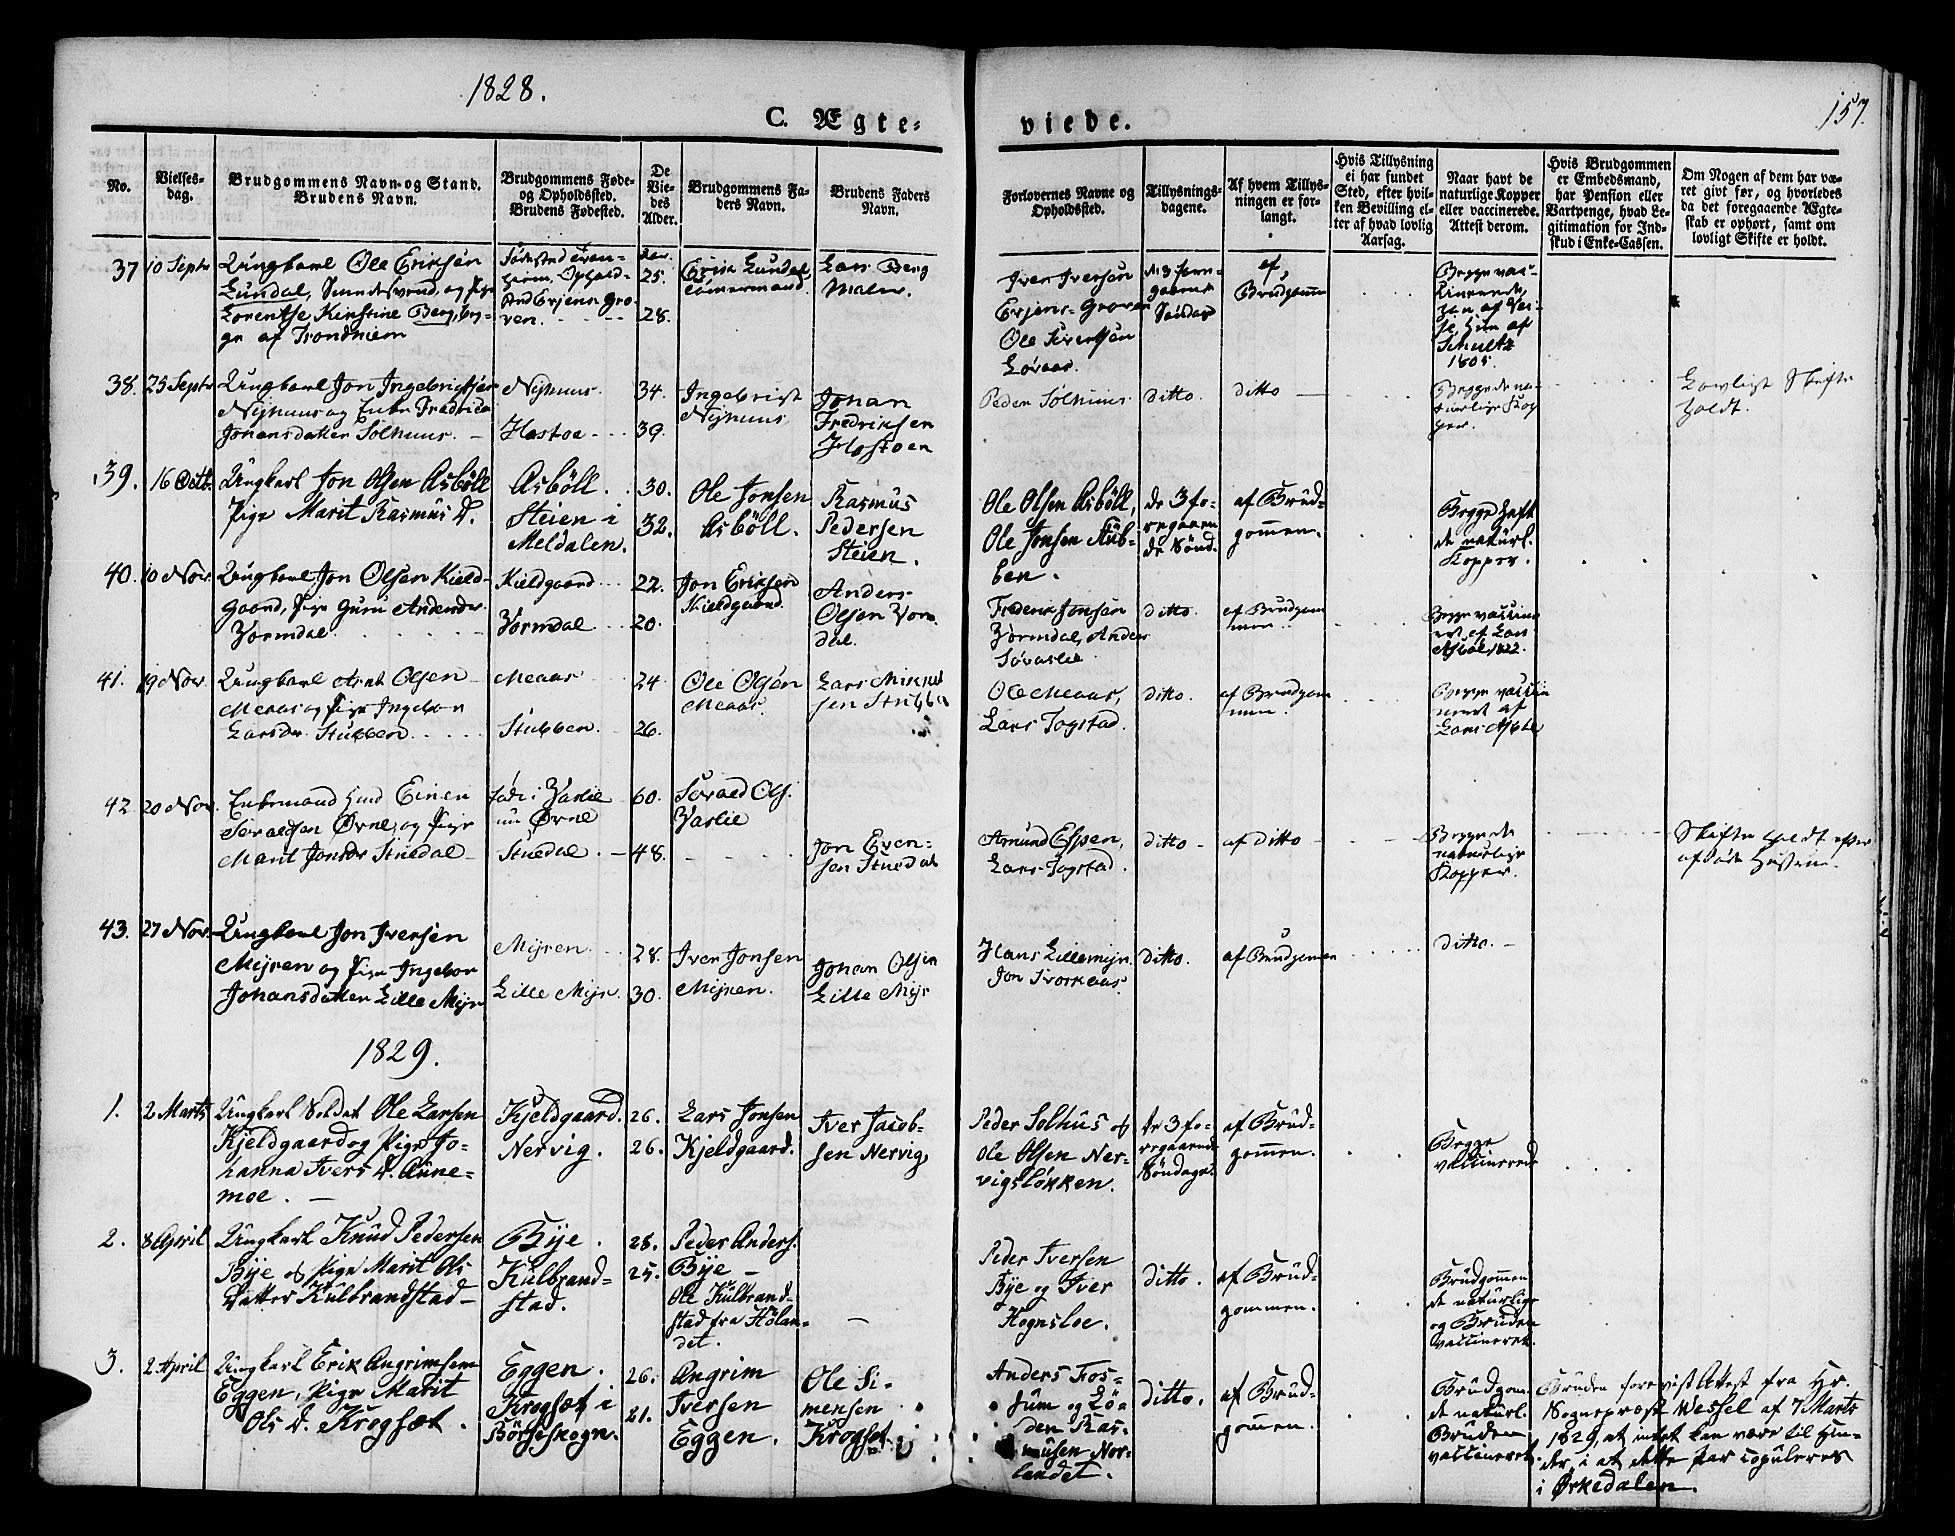 1828.
157.
C. Ægte-
viede.
No.
Vielses-
dag.
Brudgommens Navn og Stand.
Brudens Navn.
Brudgommens Føde-
og Opholdssted.
Brudens Fødested.
De
Vie-
des
Alder.
Brudgommens Fa-
ders Navn.
Brudens Faders
Navn.
Forlovernes Navne og
Opholdssted.
Tillysnings-
dagene.
Af hvem Tillys-
ningen er for-
langt.
Hvis Tillysning
ei har fundet
Sted, efter hvil-
ken Bevilling el-
ler af hvad lovlig
Aarsag.
Naar havt de
naturlige Kopper
eller vaccinerede.
Attest derom.
Hvis Brudgommen
er Embedsmand,
har Pension eller
Vartpenge, hvad Le-
gitimation for Ind-
skud i Enke-Cassen.
Om Nogen af dem har væ-
ret givt før, og hvorledes
da det foregaaende Ægte-
skab er ophørt, samt om
lovligt Skifte er holdt.
37
10 Septr
Ungkarl Ole Eriksen
Lundal, og Pige
Lorentse Kirstine Berg, beg-
ge af Trondhiem
25.
28.
Erik Lundal,
Tømermand
Lars Berg
Maler.
Iver Iversen
Evjens-Groven
Ole Sivertsen
Løraas.
de 3 fore-
gaaende
Søndage
af
Brudgomm
Begge vac-
cinerede,
Schultz
1805.
38.
25 Septr
Ungkarl Jon Ingebrigtsen
Nyhuus og Enke Fredrica
Johansdatter Solhuus. -
Nyhuus.
Hostoe
34.
39.
Ingebrigt
Nyhuus
Johan
Fredriksen
Hostoen
Peder Solhuus
ditto.
ditto
Begge de na-
turlige Kop-
per.
Lovligt Skifte
holdt.
39.
16 Octb.
Ungkarl Jon Olsen Asböll
Pige Marit Rasmus D.
Asböll.
Steien i
Meldalen.
30.
32.
Ole Jonsen
Asböll.
Rasmus
Pedersen
Steien.
Ole Olsen Asböll,
Ole Jonsen Stüb-
ben.
de 3 fo-
regaaen
de Sønd.
af Brüd-
gommen.
Begge haft
de naturl.
Kopper.
40.
10 Nov.
Ungkarl Jon Olsen Kield-
gaard, Pige Guru Andersdr
Vormdal
Kieldgaard
Vormdal
22.
20.
Jon Eriksen
Kieldgaard.
Anders
Olsen Vorm
dal.
Frederik Jonsen
Vormdal, Anders
Søvaslie
ditto.
af Brudgom
men.
Begge vaccine
ret af Lars
Asbøl, 1822.
41.
19 Nov.
Ungkarl Arnt Olsen
Meaas og Pige Ingebor
Larsdr Stubben
Meaas
Stubben.
24
26.
Ole Olsen
Meaas.
Lars Mikkel
sen Stubben
Ole Meaas,
Lars Togstad.
ditto.
af Brudgom
men.
Begge vaccin
neret af
Lars Asbøl
42
20 Nov.
Enkemand Einer
Sivaldsen Ørne, og Pige
Marit Jonsdr Stuedal
fød i Vaslie
nu Ørne
Stuedal.
60.
48.
Sivald Ols.
Vaslie
Jon Even-
sen Stuedal
Amund Espen,
Lars Togstad.
ditto
af ditto
Begge de
naturlige
Kopper.
Skifte holdt efter
afdøde Hustrue.
43.
27 Nov.
Ungkarl Jon Iversen
Myren og Pige Ingebor
Johansdatter Lille Myr
Myren.
Lille Myr.
28.
30.
Iver Jonsen
Myren.
Johan Olsen
Lille Myr
Hans Lillemyr
Jon Svorkaas.
ditto.
af Brudgommen
ditto. -
1829.
1.
2 Marts
Ungkarl Soldat Ole Larsen
Kjeldgaard og Pige Jo-
hanna Ivers D. Aune-
moe. -
Kjeldgaard.
Nervig.
26.
26.
Lars Jonsen
Kjeldgaard.
Iver Jacob-
sen Nervig,
Peder Solhus og
Ole Olsen Ner-
vigsløkken.
de 3 fo-
regaaende
Søndage.
af Brüd-
gommen.
Begge
vaccinerede
2.
8 April
Ungkarl Knüd Pedersen
Bye og Pige Marit Ols
Datter Kulbrandstad-
Bye.
Kulbrand-
stad.
28.
25.
Peder Anders.
Bye -
Ole Kulbrand-
stad fra Hølan-
det.
Peder Iversen
Bye og Iver
Hognsloe.
ditto.
af Brüd-
gommen.
Brüdgommen
de naturlige
og Bruden
vaccineret.
3.
2 April
Ungkarl Erik Angrimsen
Eggen, Pige Marit
Ols D. Krogsæt.
Eggen.
Krogsæt i
Börseskogn.
26.
21.
Angrim
Iversen
Eggen.
Ole Si-
mensen
Krogset.
Anders Fos-
sum og Lö-
den Ras-
musen Nor-
landet.
ditto.
af Brüd-
gommen.
Brüdgom.
de naturl.
Brüden
vaccineret.
Brüden foreviist Attest fra Hr.
Sognepræst Wessel af 7 Marts
1829, at intet kan være til Hin-
der, i at dette Par copuleres
i Ørkedalen.